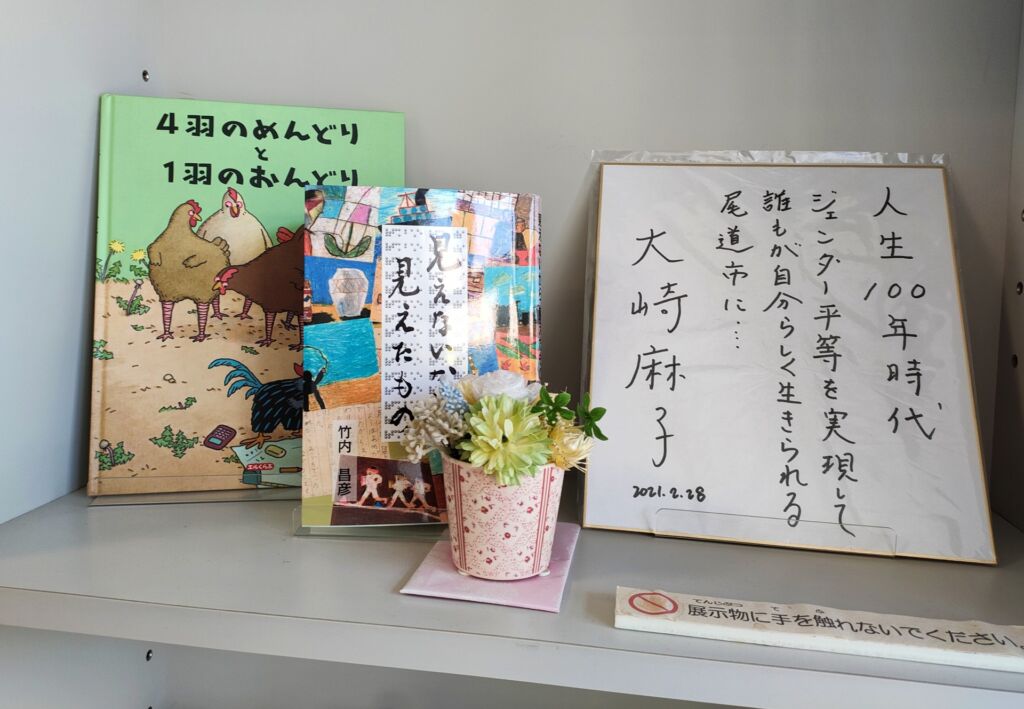 4羽のめんどり
と
1羽のおんどり
えるくらぶ
見えないから
見えたもの
竹内 昌彦
人生100年時代、
ジェンダー平等を実現して
誰もが自分らしく生きられる
尾道市に……
大崎麻子
2021.2.28
てんじぶつ て ふ
展示物に手を触れないでください。